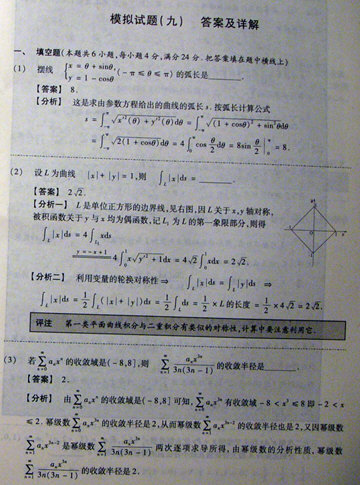 模拟试题(九) 答案及详解
一、 填空题(本题共 6 小题,每小题 4 分,满分 24 分. 把答案填在题中横线上)
(1) 摆线 { x = θ + sinθ, y = 1 − cosθ (− π ≤ θ ≤ π) 的弧长是______.
【答案】 8.
【分析】 这是求由参数方程给出的曲线的弧长 s. 按弧长计算公式
s = ∫_{−π}^{π} √(x′²(θ) + y′²(θ)) dθ = ∫_{−π}^{π} √((1 + cosθ)² + sin²θ) dθ
= ∫_{−π}^{π} √(2(1 + cosθ)) dθ = 4∫_0^π cos θ/2 dθ = 8sin θ/2 |_0^π = 8.
(2) 设 L 为曲线 |x| + |y| = 1,则 ∫_L |x| ds = ______.
【答案】 2√2.
【分析一】 L 是单位正方形的边界线,见右图,因 L 关于 x,y 轴对称,
被积函数关于 y 与 x 均为偶函数,记 L₁ 为 L 的第一象限部分,则得
∫_L |x| ds = 4∫_{L₁} xds
y = −x + 1
= 4∫_0^1 x√(y′² + 1) dx = 4√2∫_0^1 xdx = 2√2.
【分析二】 利用变量的轮换对称性 ⇒ ∫_L |x| ds = ∫_L |y| ds ⇒
∫_L |x| ds = 1/2 ∫_L (|x| + |y|) ds = 1/2 ∫_L ds = 1/2 × L 的长度 = 1/2 × 4√2 = 2√2.
评注 第一类平面曲线积分与二重积分有类似的对称性,计算中要注意利用它.
(3) 若 ∑_{n=0}^∞ aₙxⁿ 的收敛域是(− 8,8],则 ∑_{n=1}^∞ aₙx³ⁿ/(3n(3n − 1)) 的收敛半径是______.
【答案】 2.
【分析】 由 ∑_{n=0}^∞ aₙxⁿ 的收敛域是(− 8,8] 可知, ∑_{n=0}^∞ aₙx³ⁿ 有收敛域 − 8 < x³ ≤ 8 即 − 2 < x
≤ 2. 幂级数 ∑_{n=0}^∞ aₙx³ⁿ 的收敛半径是 2,从而幂级数 ∑_{n=1}^∞ aₙx³ⁿ⁻² 的收敛半径也是 2,又因幂级数
∑_{n=1}^∞ aₙx³ⁿ⁻² 是幂级数 ∑_{n=1}^∞ aₙx³ⁿ/(3n(3n − 1)) 两次逐项求导所得,由幂级数的分析性质, 幂级数
∑_{n=1}^∞ aₙx³ⁿ/(3n(3n − 1)) 的收敛半径是 2.